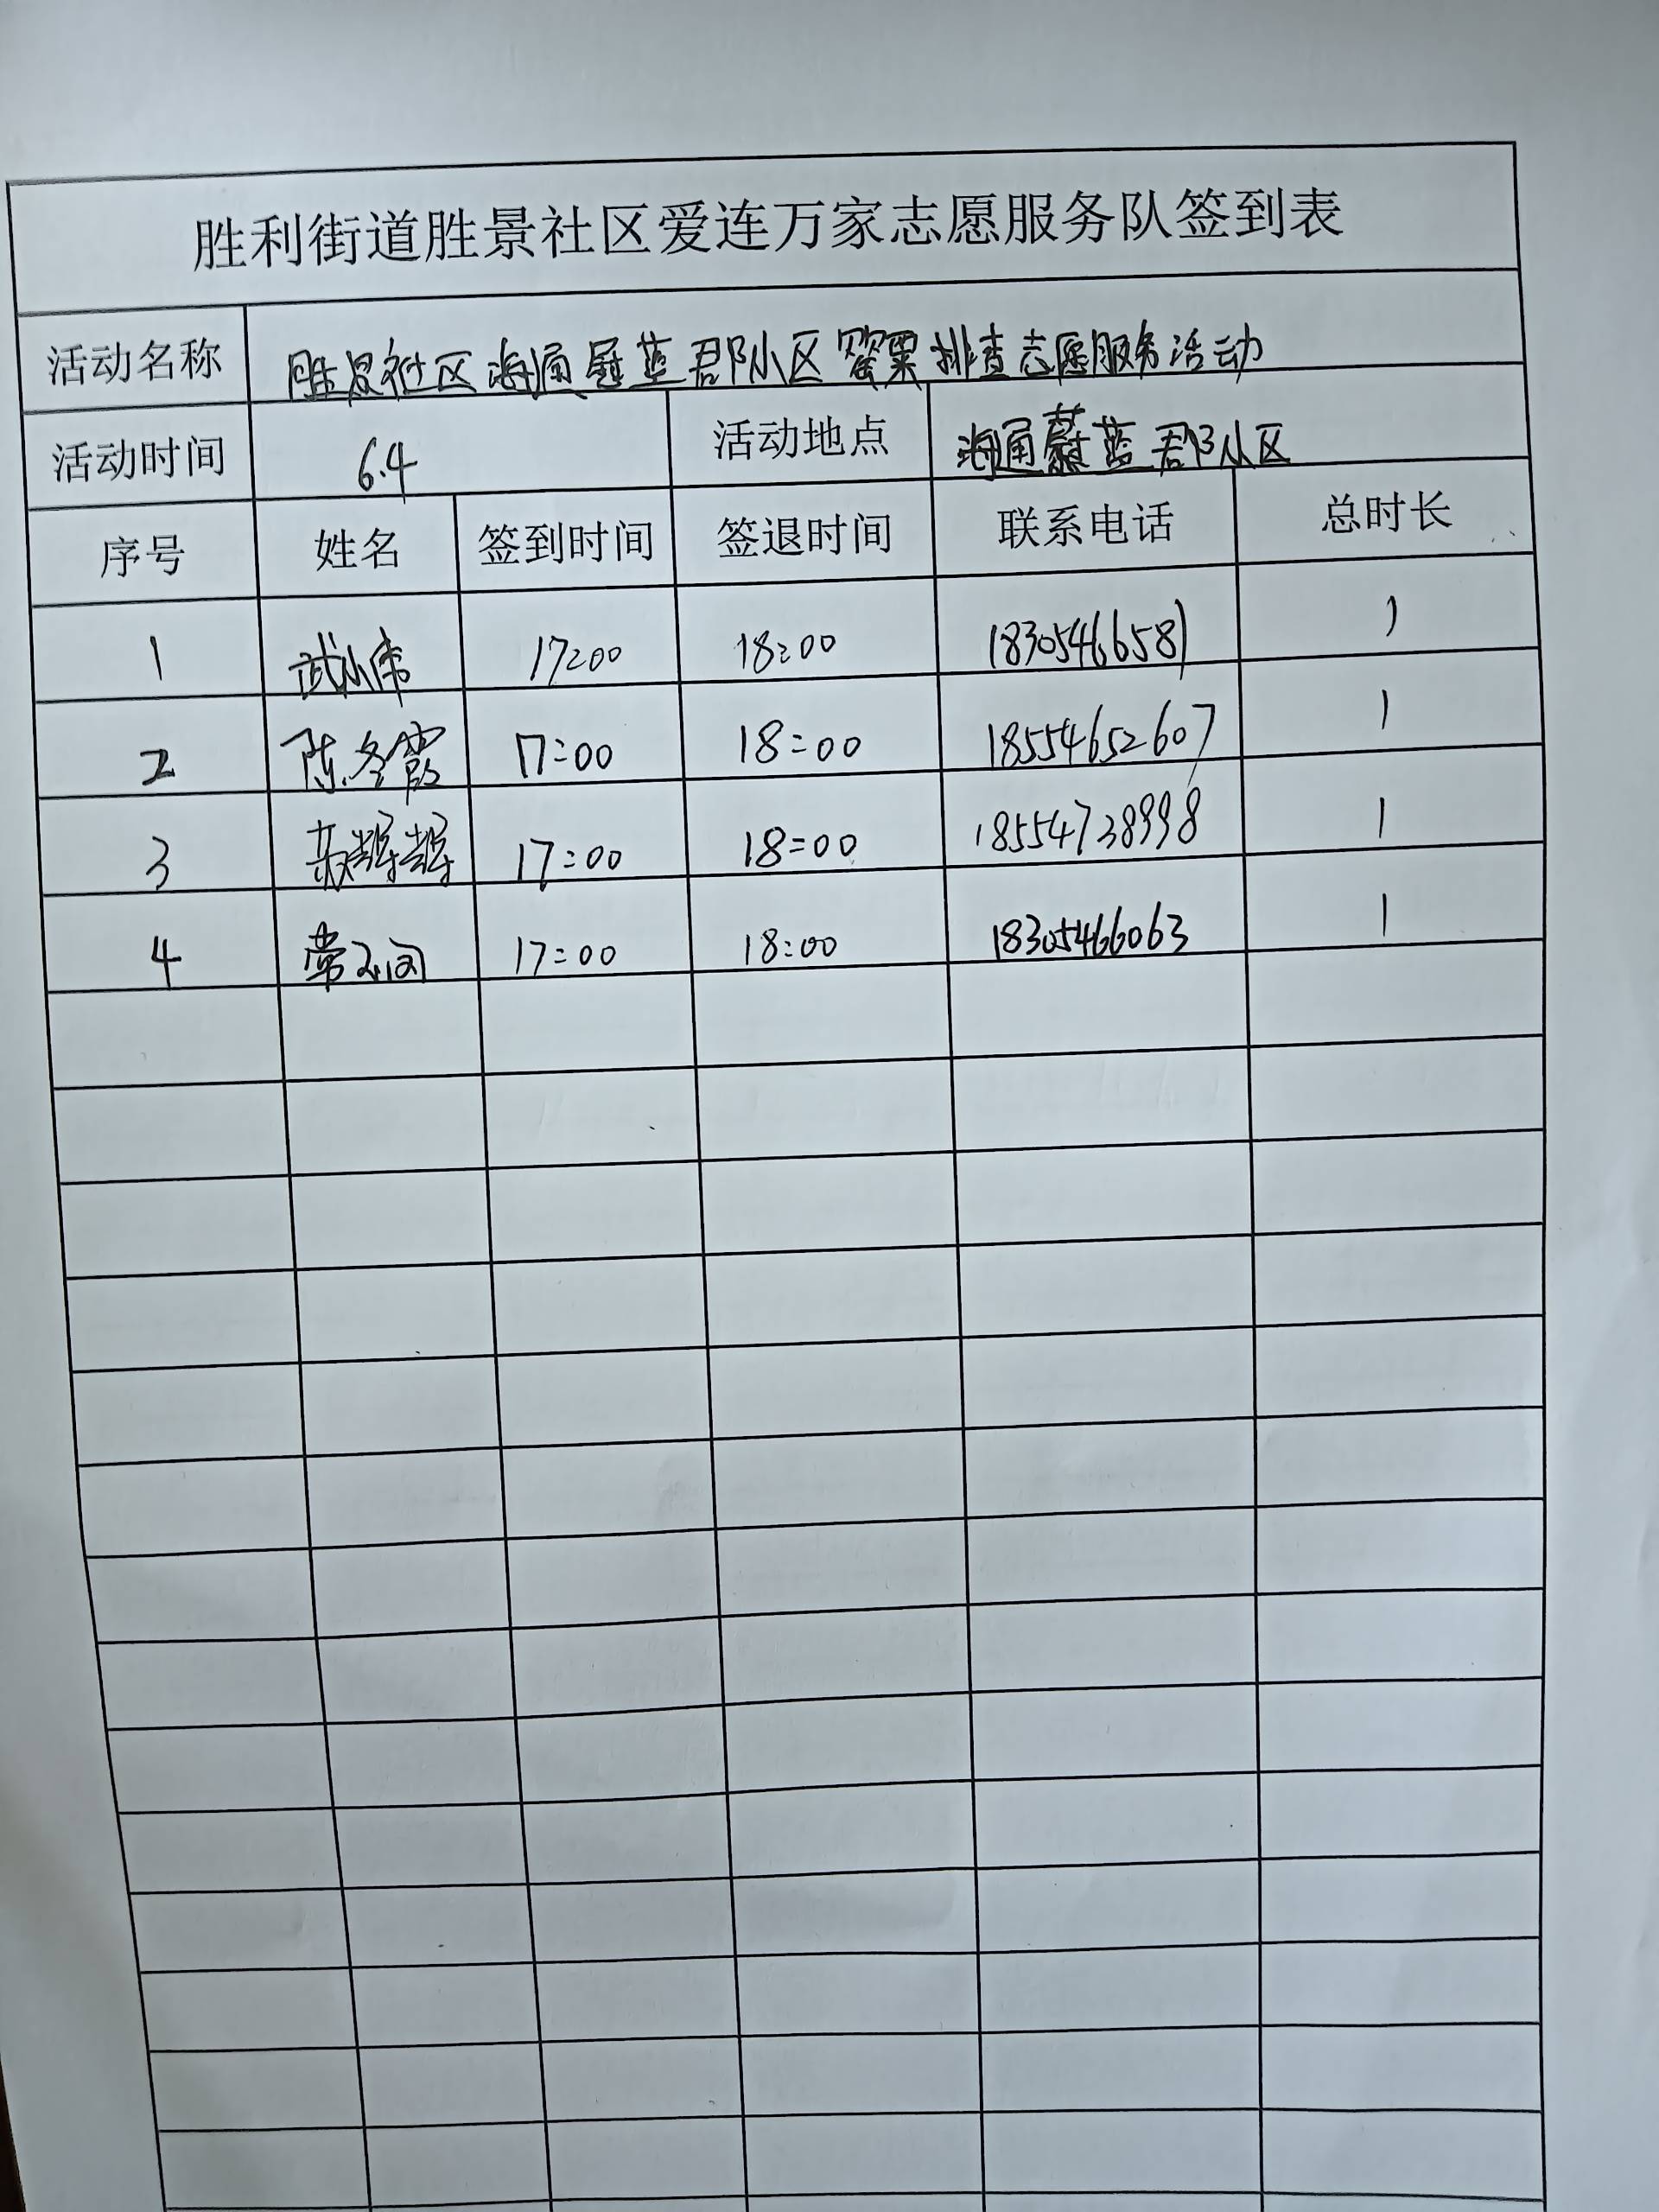 胜利街道胜景社区爱连万家志愿服务队签到表
活动名称 胜景社区海通蔚蓝君邸小区罂粟排查志愿服务活动
活动时间 6.4 活动地点 海通蔚蓝君邸小区
序号 姓名 签到时间 签退时间 联系电话 总时长
1 武小伟 17:00 18:00 18305466581 1
2 陈冬霞 17:00 18:00 18554652607 1
3 17:00 18:00 18554738998 1
4 常 17:00 18:00 18305466063 1